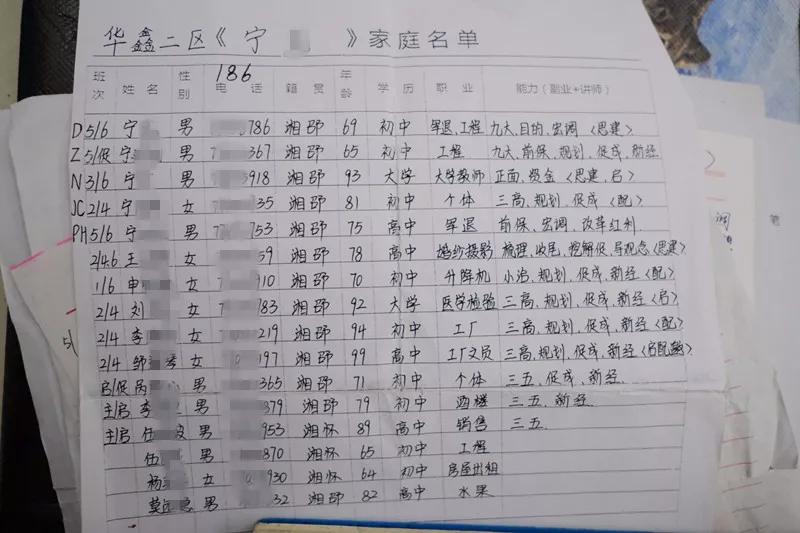 华鑫二区《宁 》家庭名单
班次 姓名 性别 186 电话 籍贯 年龄 学历 职业 能力（副业+讲师）
D 5/6 宁 男 786 湘邵 69 初中 军退、工程 九大、目的、宏调《思建》
Z 5/促 宁 男 367 湘邵 65 初中 工程 九大、前保、规划、促成、新经
N 3/6 宁 男 3918 湘邵 93 大学 大学教师 正面、资金《思建、启》
JC 2/4 宁 女 35 湘邵 81 初中 个体 三高、规划、促成《配》
PH 5/6 宁 男 753 湘邵 75 高中 军退 前保、宏调、改革红利
2/4.6 王 女 59 湘邵 78 高中 婚纱摄影 梳理、收尾、挖解促、导观念《思建》
1/6 申 女 910 湘邵 70 初中 升降机 小治、规划、促成、新经《配》
2/4 刘 女 783 湘邵 92 大学 医学检验 三高、规划、促成、新经《启》
2/4 李 女 219 湘邵 94 初中 工厂 三高、规划、促成、新经《配》
2/4 邹 女 197 湘邵 99 高中 工厂文员 三高、规划、促成、新经《启配
启/促 男 365 湘邵 71 初中 个体 三五、促成、新经
主/启 李 男 879 湘邵 79 初中 酒楼 三五、新经
主/启 伍 男 953 湘怀 89 高中 销售 三五
伍 男 870 湘怀 65 初中 工程
杨 女 930 湘怀 64 初中 房屋出租
莫 男 32 湘邵 82 高中 水果